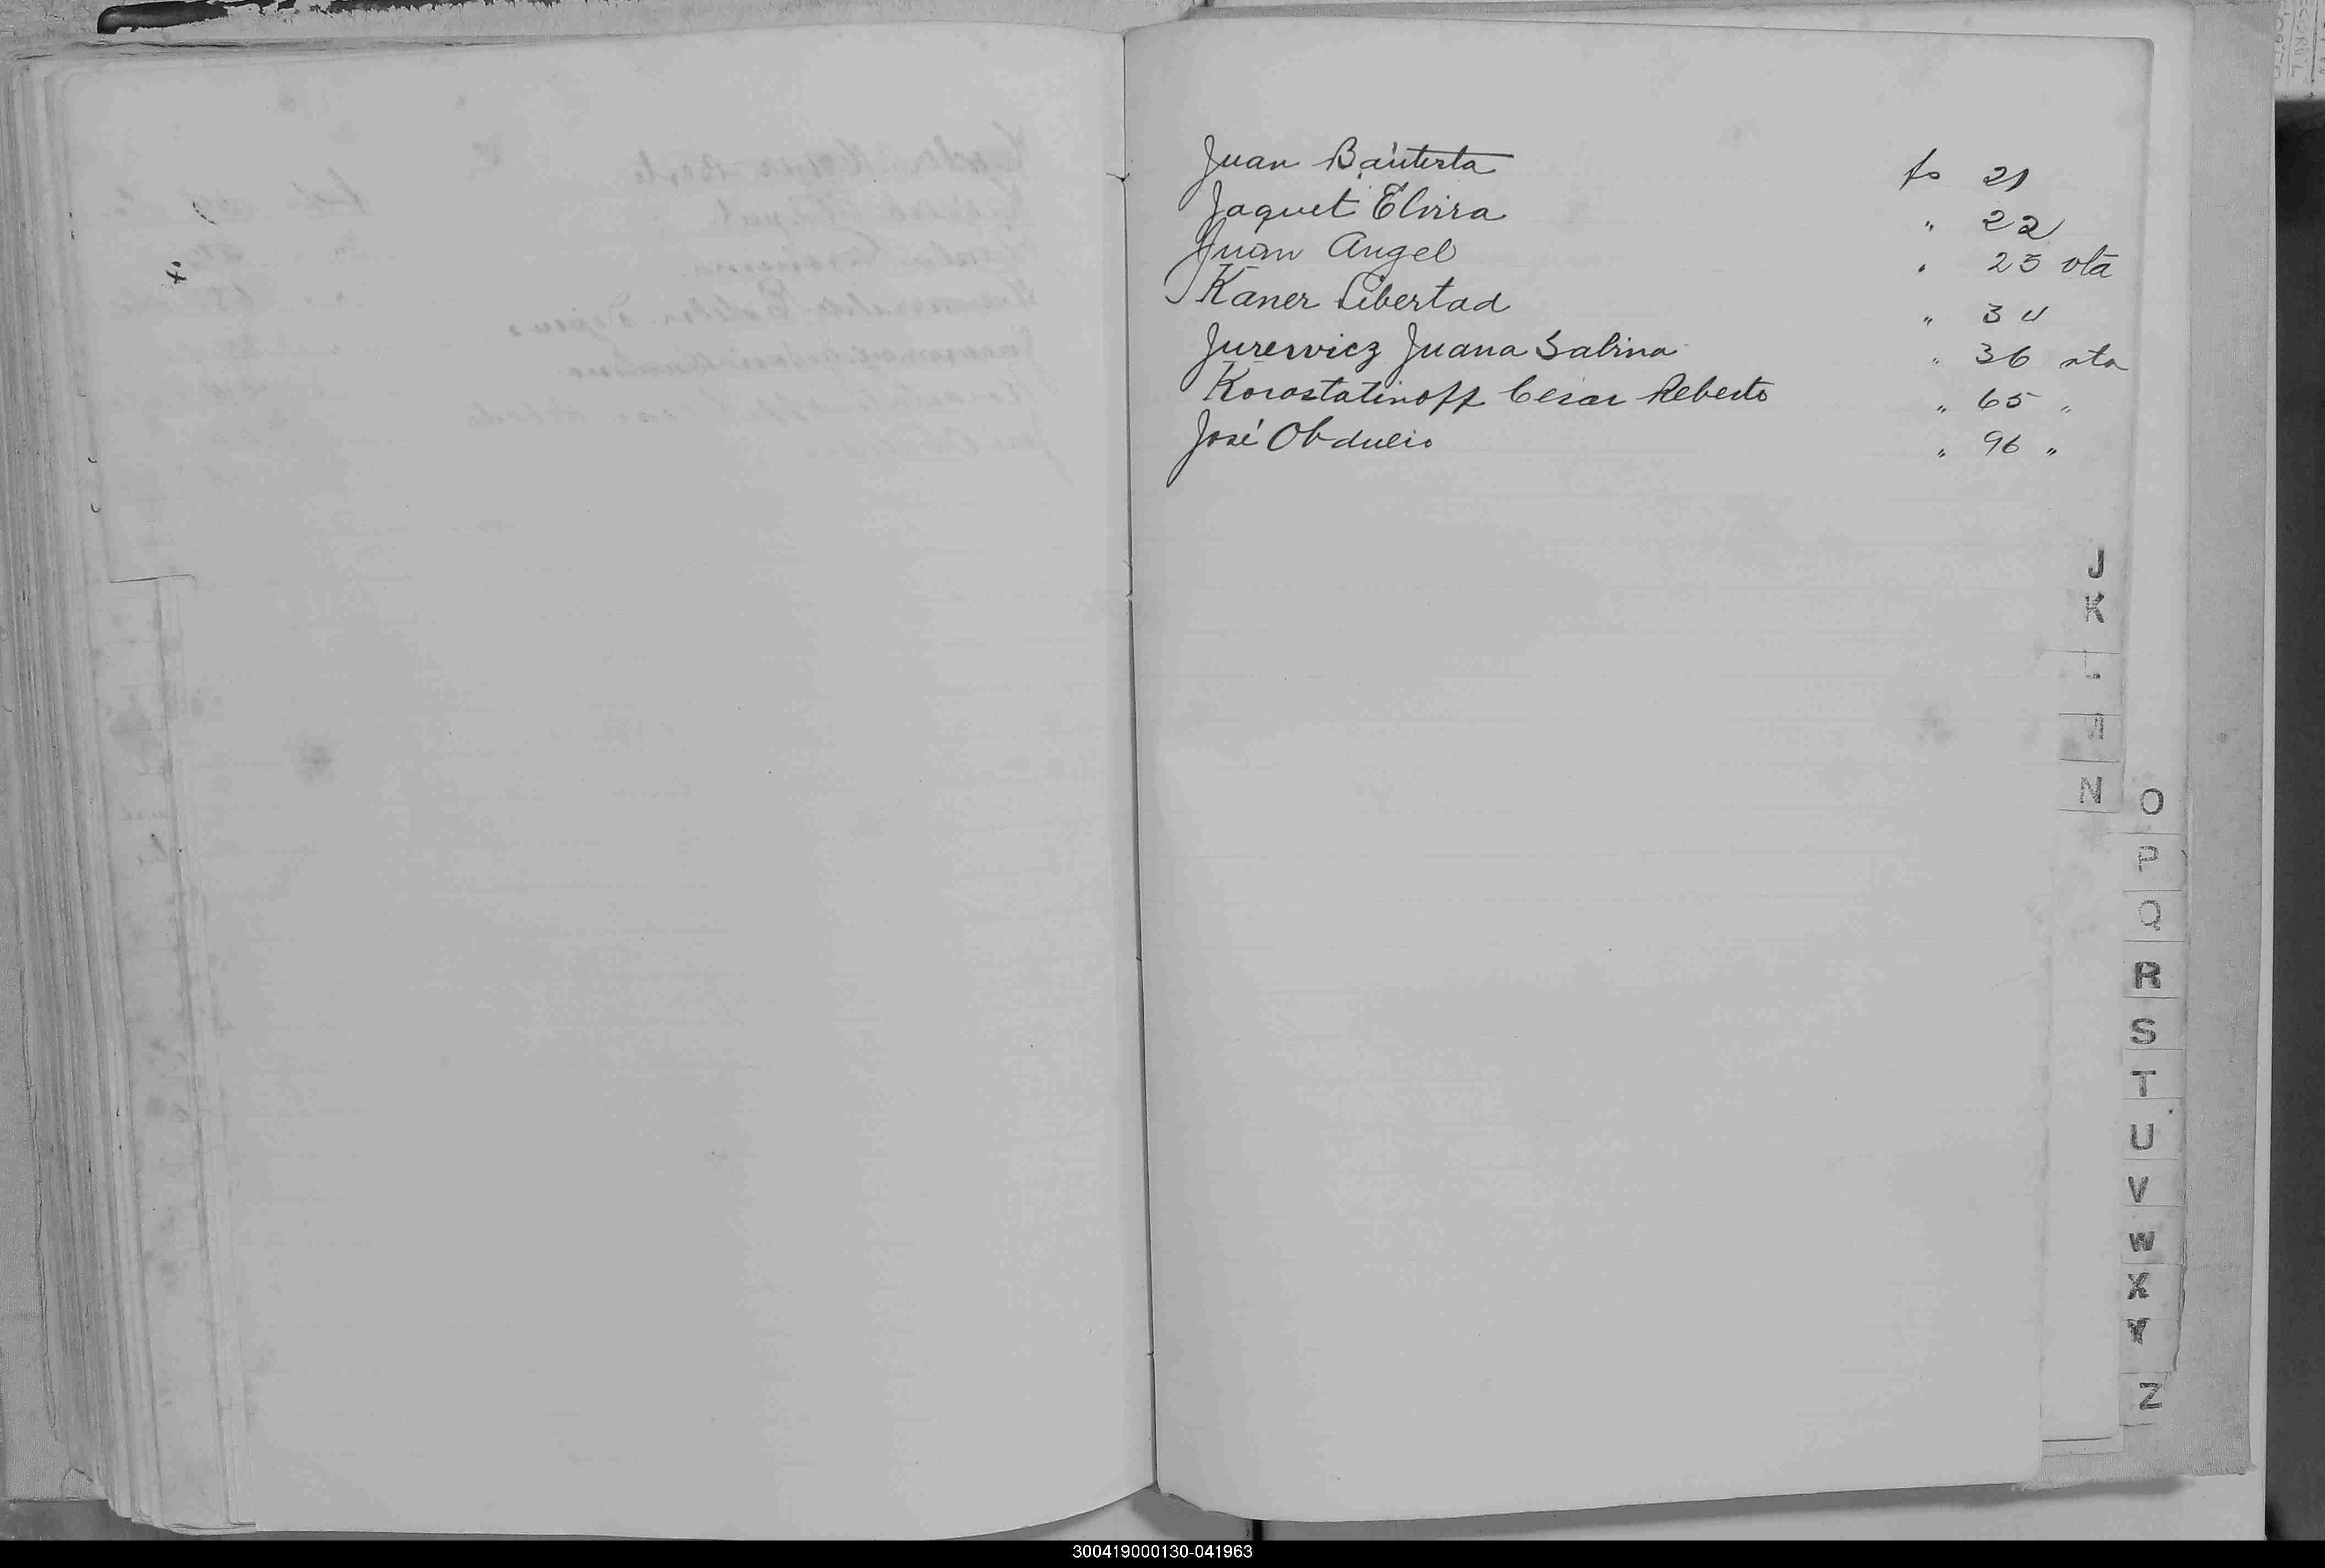 Juan Bautista fs 21
Jaquet Elvira " 22
Juan Angel " 23 vta
Kaner Libertad " 34
Jurewicz Juana Sabina " 36 vta
Korostatinoff Cesar Alberto " 65 "
José Obdulio " 96 "
J
K
L
N
O
P
Q
R
S
T
U
V
W
X
Y
Z
300419000130-041963